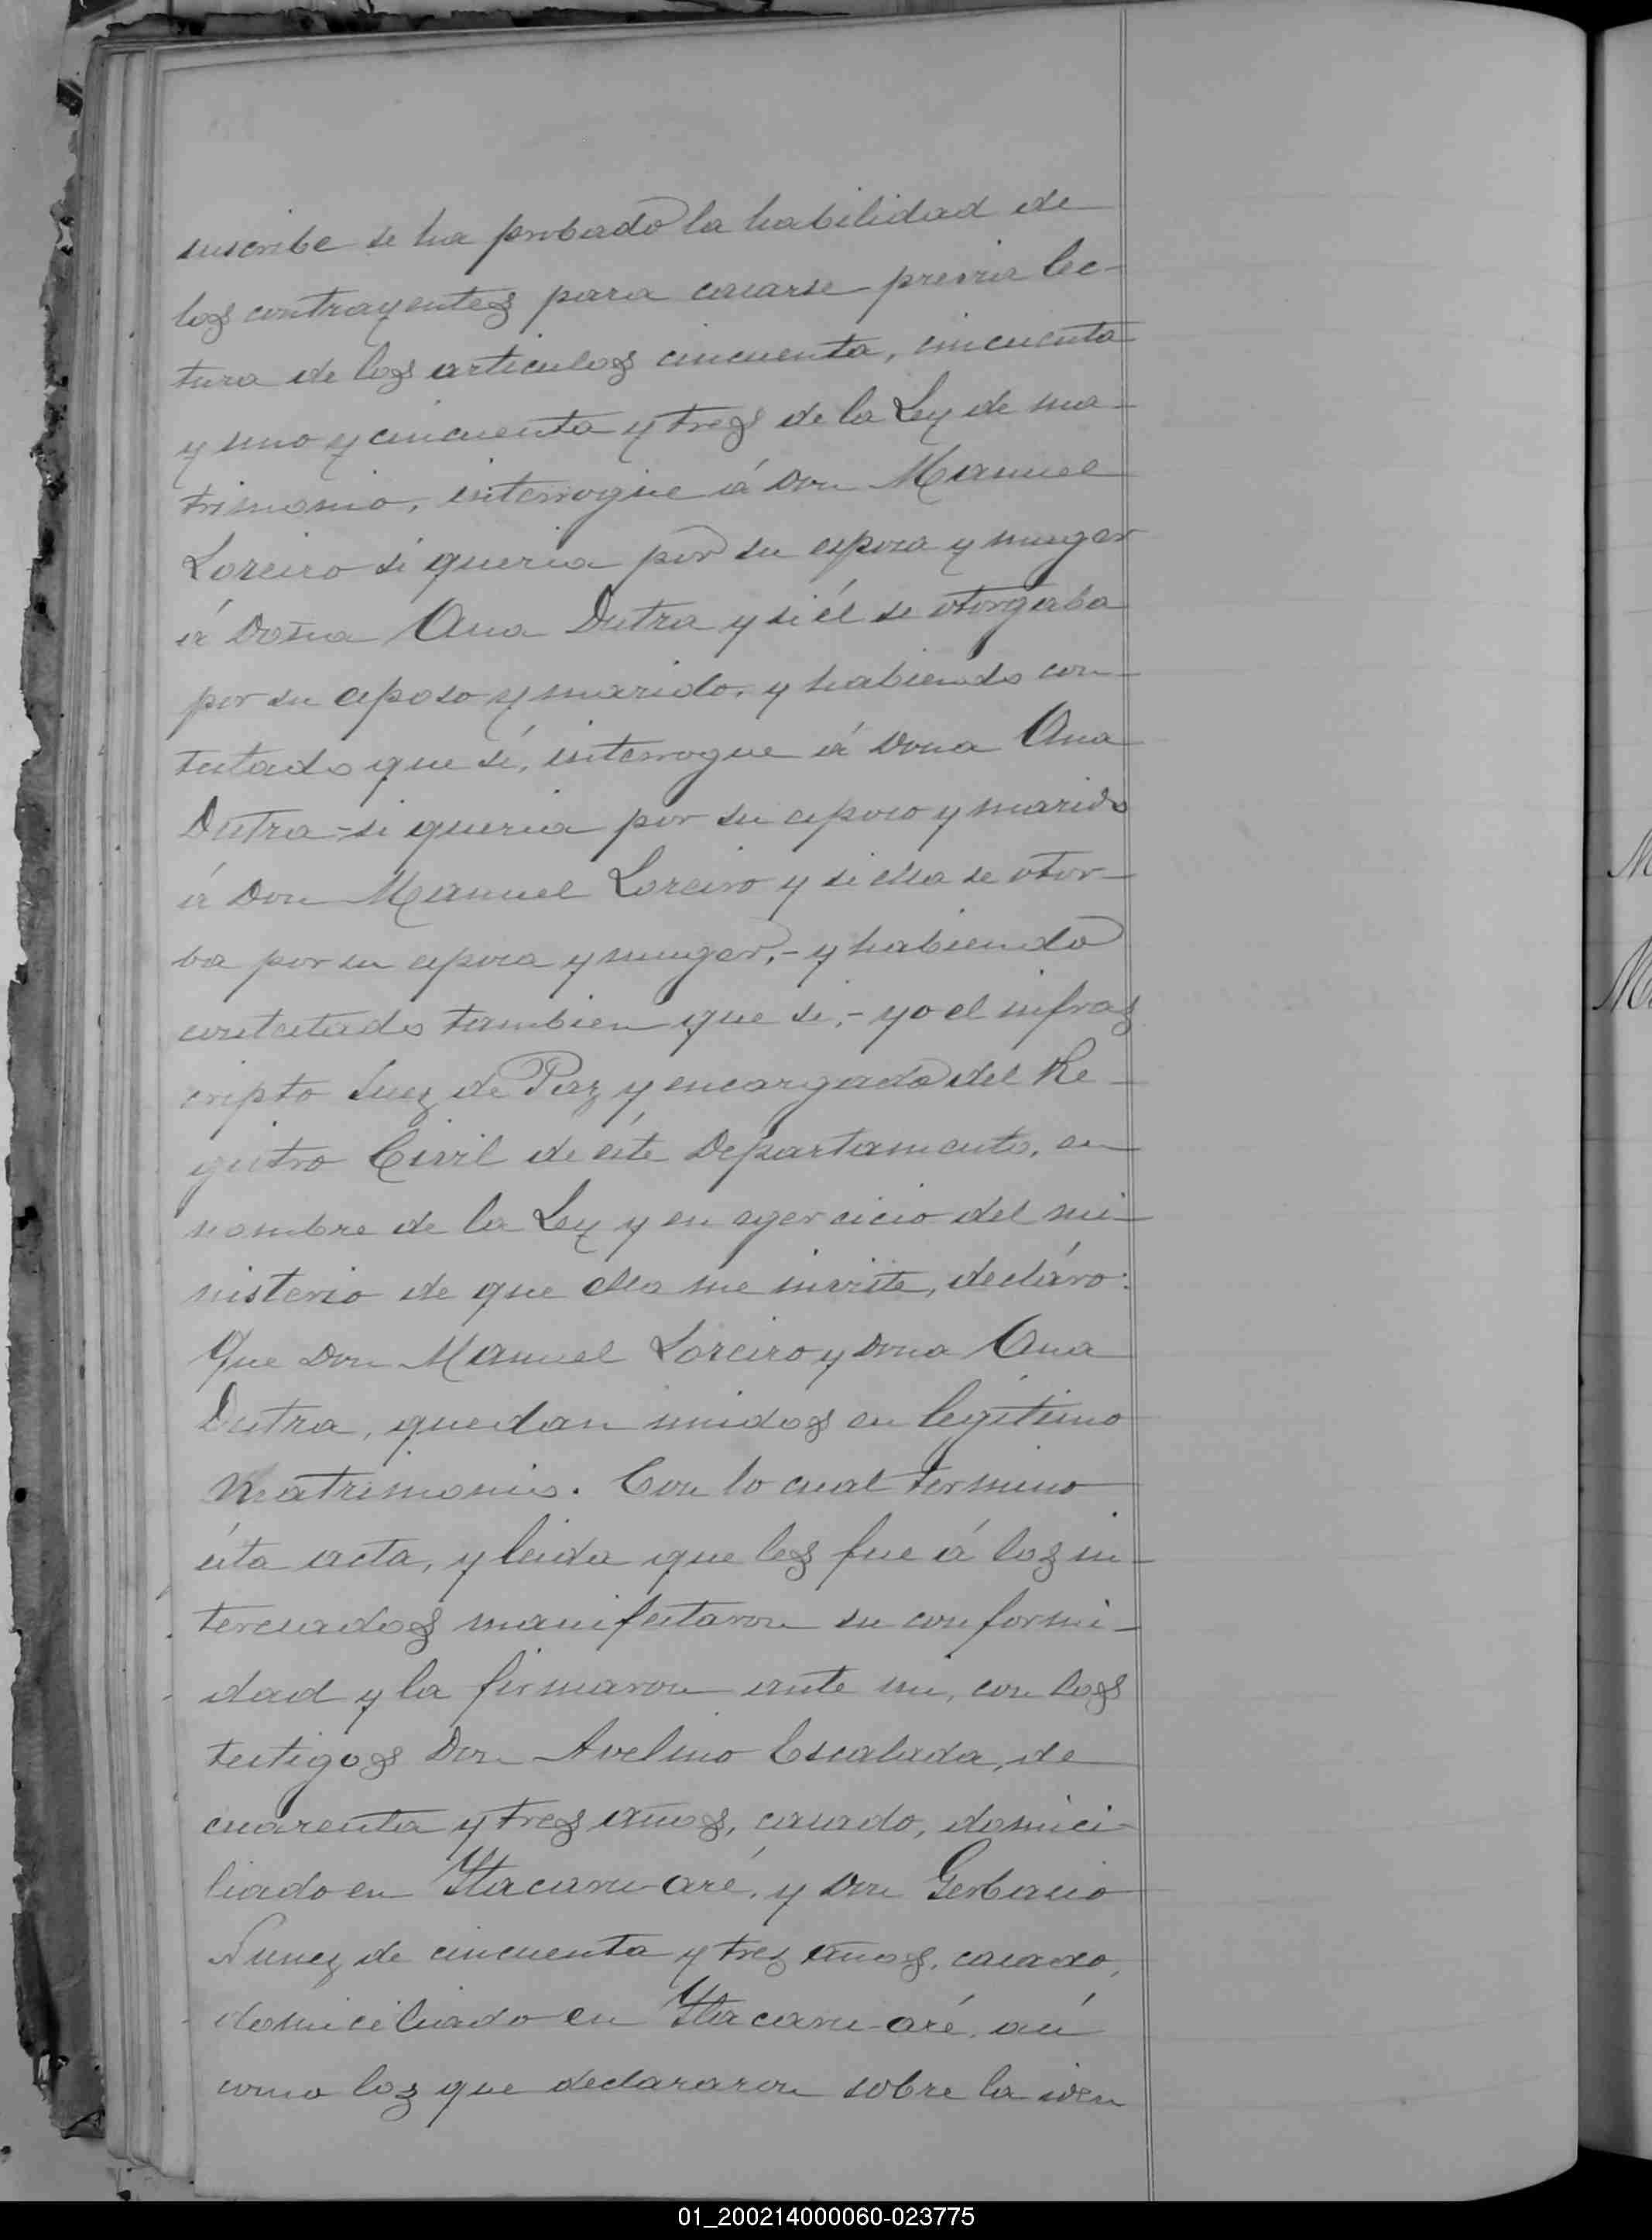 suscribe se ha probado la habilidad de
los contrayentes para casarse previa lec-
tura de los articulos cincuenta, cincuenta
y uno y cincuenta y tres de la Ley de ma-
trimonio, interrogue á Don Manuel
Loreiro si queria por su esposa y muger
á Doña Ana Dutra y si él se otorgaba
por su esposo y marido, y habiendo con-
testado que sí, interrogue á Dona Ana
Dutra - si queria por su esposo y marido
á Don Manuel Loreiro y si ella se otor-
ba por su esposa y muger, - y habiendo
contestado tambien que si, - yo el infras
cripto Juez de Paz y encargado del Re-
gistro Civil de éste Departamento, en
nombre de la Ley y en egercicio del mi-
nisterio de que ella me inviste, decláro:
Que Don Manuel Loreiro y Dona Ana
Dutra, quedan unidos en legítimo
Matrimonio. Con lo cual termino
ésta acta, y leida que les fue á los in-
teresados manifestaron su conformi-
dad y la firmaron ante mi, con los
testigos Don Avelino Escalada, de
cuarenta y tres años, casado, domici-
liado en Ytacaru-aré, y Don Gerbacio
Nunez de cincuenta y tres años, casado,
domiciliado en Ytacaru-aré, así
como los que declararon sobre la iden
M
M
01_200214000060-023775